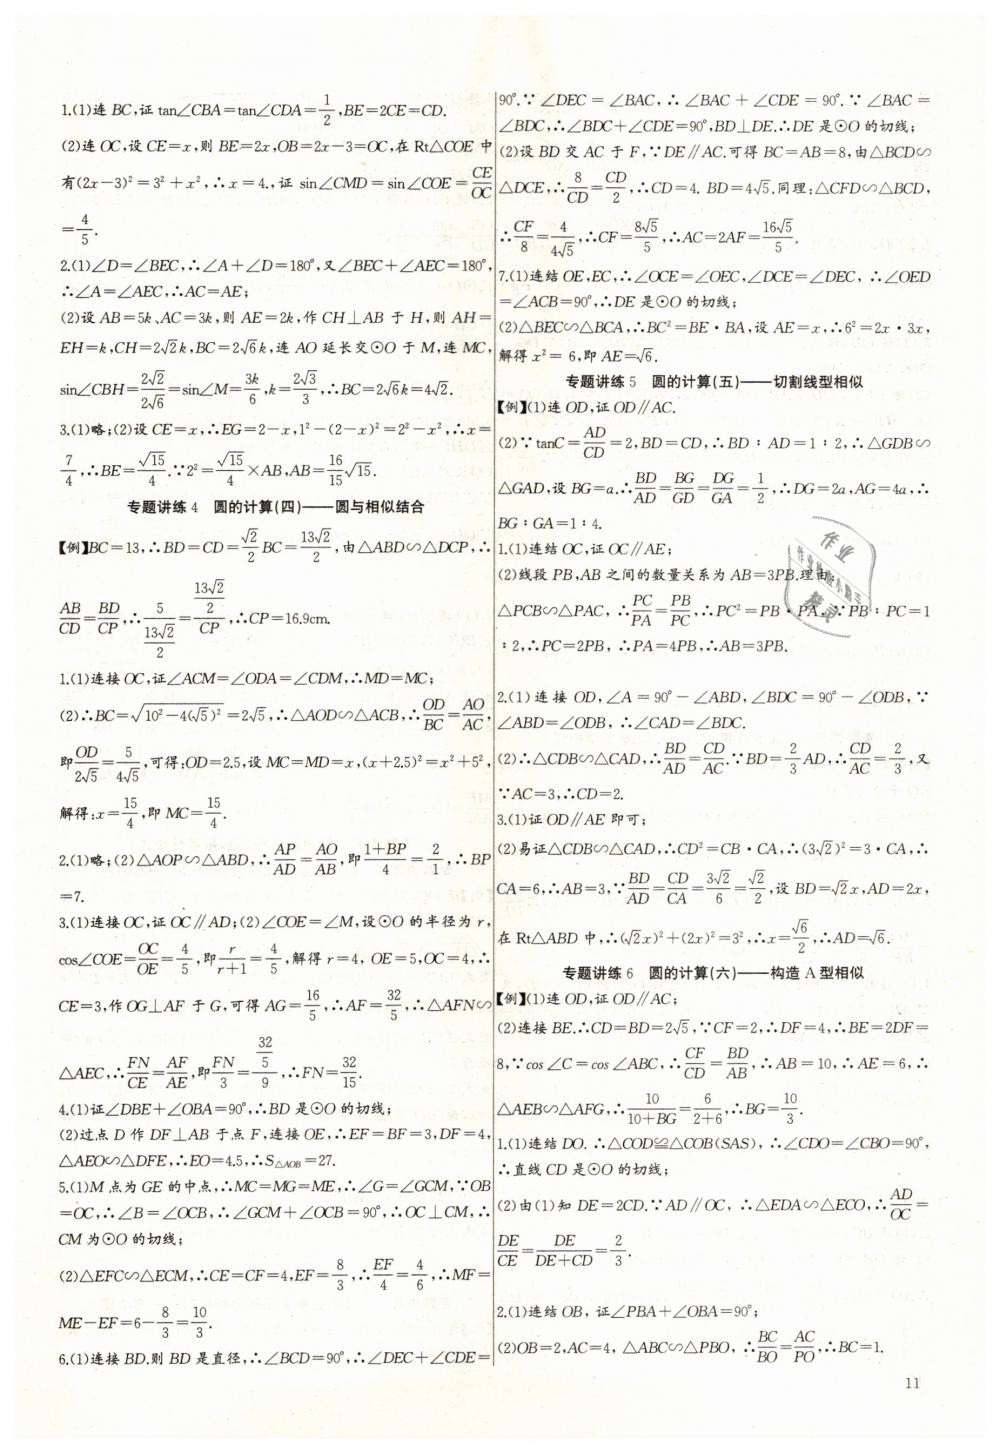 1.(1)连 BC,证 tan∠CBA=tan∠CDA=1/2,BE=2CE=CD.
(2)连 OC,设 CE=x,则 BE=2x,OB=2x-3=OC,在 Rt△COE 中
有(2x-3)²=3²+x²,∴x=4.,证 sin∠CMD=sin∠COE=CE/OC
=4/5.
2.(1)∠D=∠BEC,∴∠A+∠D=180°,又∠BEC+∠AEC=180°,
∴∠A=∠AEC,∴AC=AE;
(2)设 AB=5k、AC=3k,则 AE=2k,作 CH⊥AB 于 H,则 AH=
EH=k,CH=2√2k,BC=2√6k,连 AO 延长交⊙O 于 M,连 MC,
sin∠CBH=2√2/2√6=sin∠M=3k/6,k=2√3/3,∴BC=2√6k=4√2.
3.(1)略;(2)设 CE=x,∴EG=2-x,1²-(2-x)²=2²-x²,∴x=
7/4,∴BE=√15/4.∵2²=√15/4×AB,AB=16/15√15.
专题讲练 4 圆的计算(四)——圆与相似结合
【例】BC=13,∴BD=CD=√2/2BC=13√2/2,由△ABD∽△DCP,∴
AB/CD=BD/CP,∴5/(13√2/2)=(13√2/2)/CP,∴CP=16.9cm.
1.(1)连接 OC,证∠ACM=∠ODA=∠CDM,∴MD=MC;
(2)∴BC=√(10²-4(√5)²)=2√5,∴△AOD∽△ACB,∴OD/BC=AO/AC,
即OD/2√5=5/4√5,可得:OD=2.5,设 MC=MD=x,(x+2.5)²=x²+5²,
解得:x=15/4,即 MC=15/4.
2.(1)略;(2)△AOP∽△ABD,∴AP/AD=AO/AB,即(1+BP)/4=2/1,∴BP
=7.
3.(1)连接 OC,证 OC∥AD;(2)∠COE=∠M,设⊙O 的半径为 r,
cos∠COE=OC/OE=4/5,即r/(r+1)=4/5,解得 r=4, OE=5,OC=4,∴
CE=3,作 OG⊥AF 于 G,可得 AG=16/5,∴AF=32/5,∴△AFN∽
△AEC,∴FN/CE=AF/AE,即FN/3=(32/5)/9,∴FN=32/15.
4.(1)证∠DBE+∠OBA=90°,∴BD 是⊙O 的切线;
(2)过点 D 作 DF⊥AB 于点 F,连接 OE,∴EF=BF=3,DF=4,
△AEO∽△DFE,∴EO=4.5,∴S△AOB=27.
5.(1)M 点为 GE 的中点,∴MC=MG=ME,∴∠G=∠GCM,∵OB
=OC,∴∠B=∠OCB,∴∠GCM+∠OCB=90°,∴OC⊥CM,∴
CM 为⊙O 的切线;
(2)△EFC∽△ECM,∴CE=CF=4,EF=8/3,∴EF/4=4/6,∴MF=
ME-EF=6-8/3=10/3.
6.(1)连接 BD.则 BD 是直径,∴∠BCD=90°,∴∠DEC+∠CDE=
90°.∵∠DEC=∠BAC,∴∠BAC+∠CDE=90°.∵∠BAC=
∠BDC,∴∠BDC+∠CDE=90°,BD⊥DE.∴DE 是⊙O 的切线;
(2)设 BD 交 AC 于 F,∵DE∥AC.可得 BC=AB=8,由△BCD∽
△DCE,∴8/CD=CD/2,∴CD=4. BD=4√5.同理:△CFD∽△BCD,
∴CF/8=4/4√5,∴CF=8√5/5,∴AC=2AF=16√5/5.
7.(1)连结 OE,EC,∴∠OCE=∠OEC,∠DCE=∠DEC,∴∠OED
=∠ACB=90°,∴DE 是⊙O 的切线;
(2)△BEC∽△BCA,∴BC²=BE·BA,设 AE=x,∴6²=2x·3x,
解得 x²=6,即 AE=√6.
专题讲练 5 圆的计算(五)——切割线型相似
【例】(1)连 OD,证 OD∥AC.
(2)∵tanC=AD/CD=2,BD=CD,∴BD∶AD=1∶2,∴△GDB∽
△GAD,设 BG=a.∴BD/AD=BG/GD=DG/GA=1/2,∴DG=2a,AG=4a,∴
BG∶GA=1∶4.
1.(1)连结 OC,证 OC∥AE;
(2)线段 PB,AB 之间的数量关系为 AB=3PB.理由:
△PCB∽△PAC,∴PC/PA=PB/PC,∴PC²=PB·PA,∵PB∶PC=1
∶2,∴PC=2PB,∴PA=4PB,∴AB=3PB.
2.(1)连接 OD,∠A=90°-∠ABD,∠BDC=90°-∠ODB,∵
∠ABD=∠ODB,∴∠CAD=∠BDC.
(2)∴△CDB∽△CAD,∴BD/AD=CD/AC.∵BD=2/3AD,∴CD/AC=2/3,又
∵AC=3,∴CD=2.
3.(1)证 OD∥AE 即可;
(2)易证△CDB∽△CAD,∴CD²=CB·CA,∴(3√2)²=3·CA,∴
CA=6,∴AB=3,∵BD/AD=CD/CA=3√2/6=√2/2,设 BD=√2x,AD=2x,
在 Rt△ABD 中,∴(√2x)²+(2x)²=3²,∴x=√6/2,∴AD=√6.
专题讲练 6 圆的计算(六)——构造 A 型相似
【例】(1)连 OD,证 OD∥AC;
(2)连接 BE.∴CD=BD=2√5,∵CF=2,∴DF=4,∴BE=2DF=
8,∵cos∠C=cos∠ABC,∴CF/CD=BD/AB,∴AB=10,∴AE=6,∴
△AEB∽△AFG,∴10/(10+BG)=6/(2+6),∴BG=10/3.
1.(1)连结 DO.∴△COD≌△COB(SAS),∴∠CDO=∠CBO=90°,
∴直线 CD 是⊙O 的切线;
(2)由(1)知 DE=2CD.∵AD∥OC,∴△EDA∽△ECO,∴AD/OC=
DE/CE=DE/(DE+CD)=2/3.
2.(1)连结 OB,证∠PBA+∠OBA=90°;
(2)OB=2,AC=4,△ABC∽△PBO,∴BC/BO=AC/PO,∴BC=1.
11